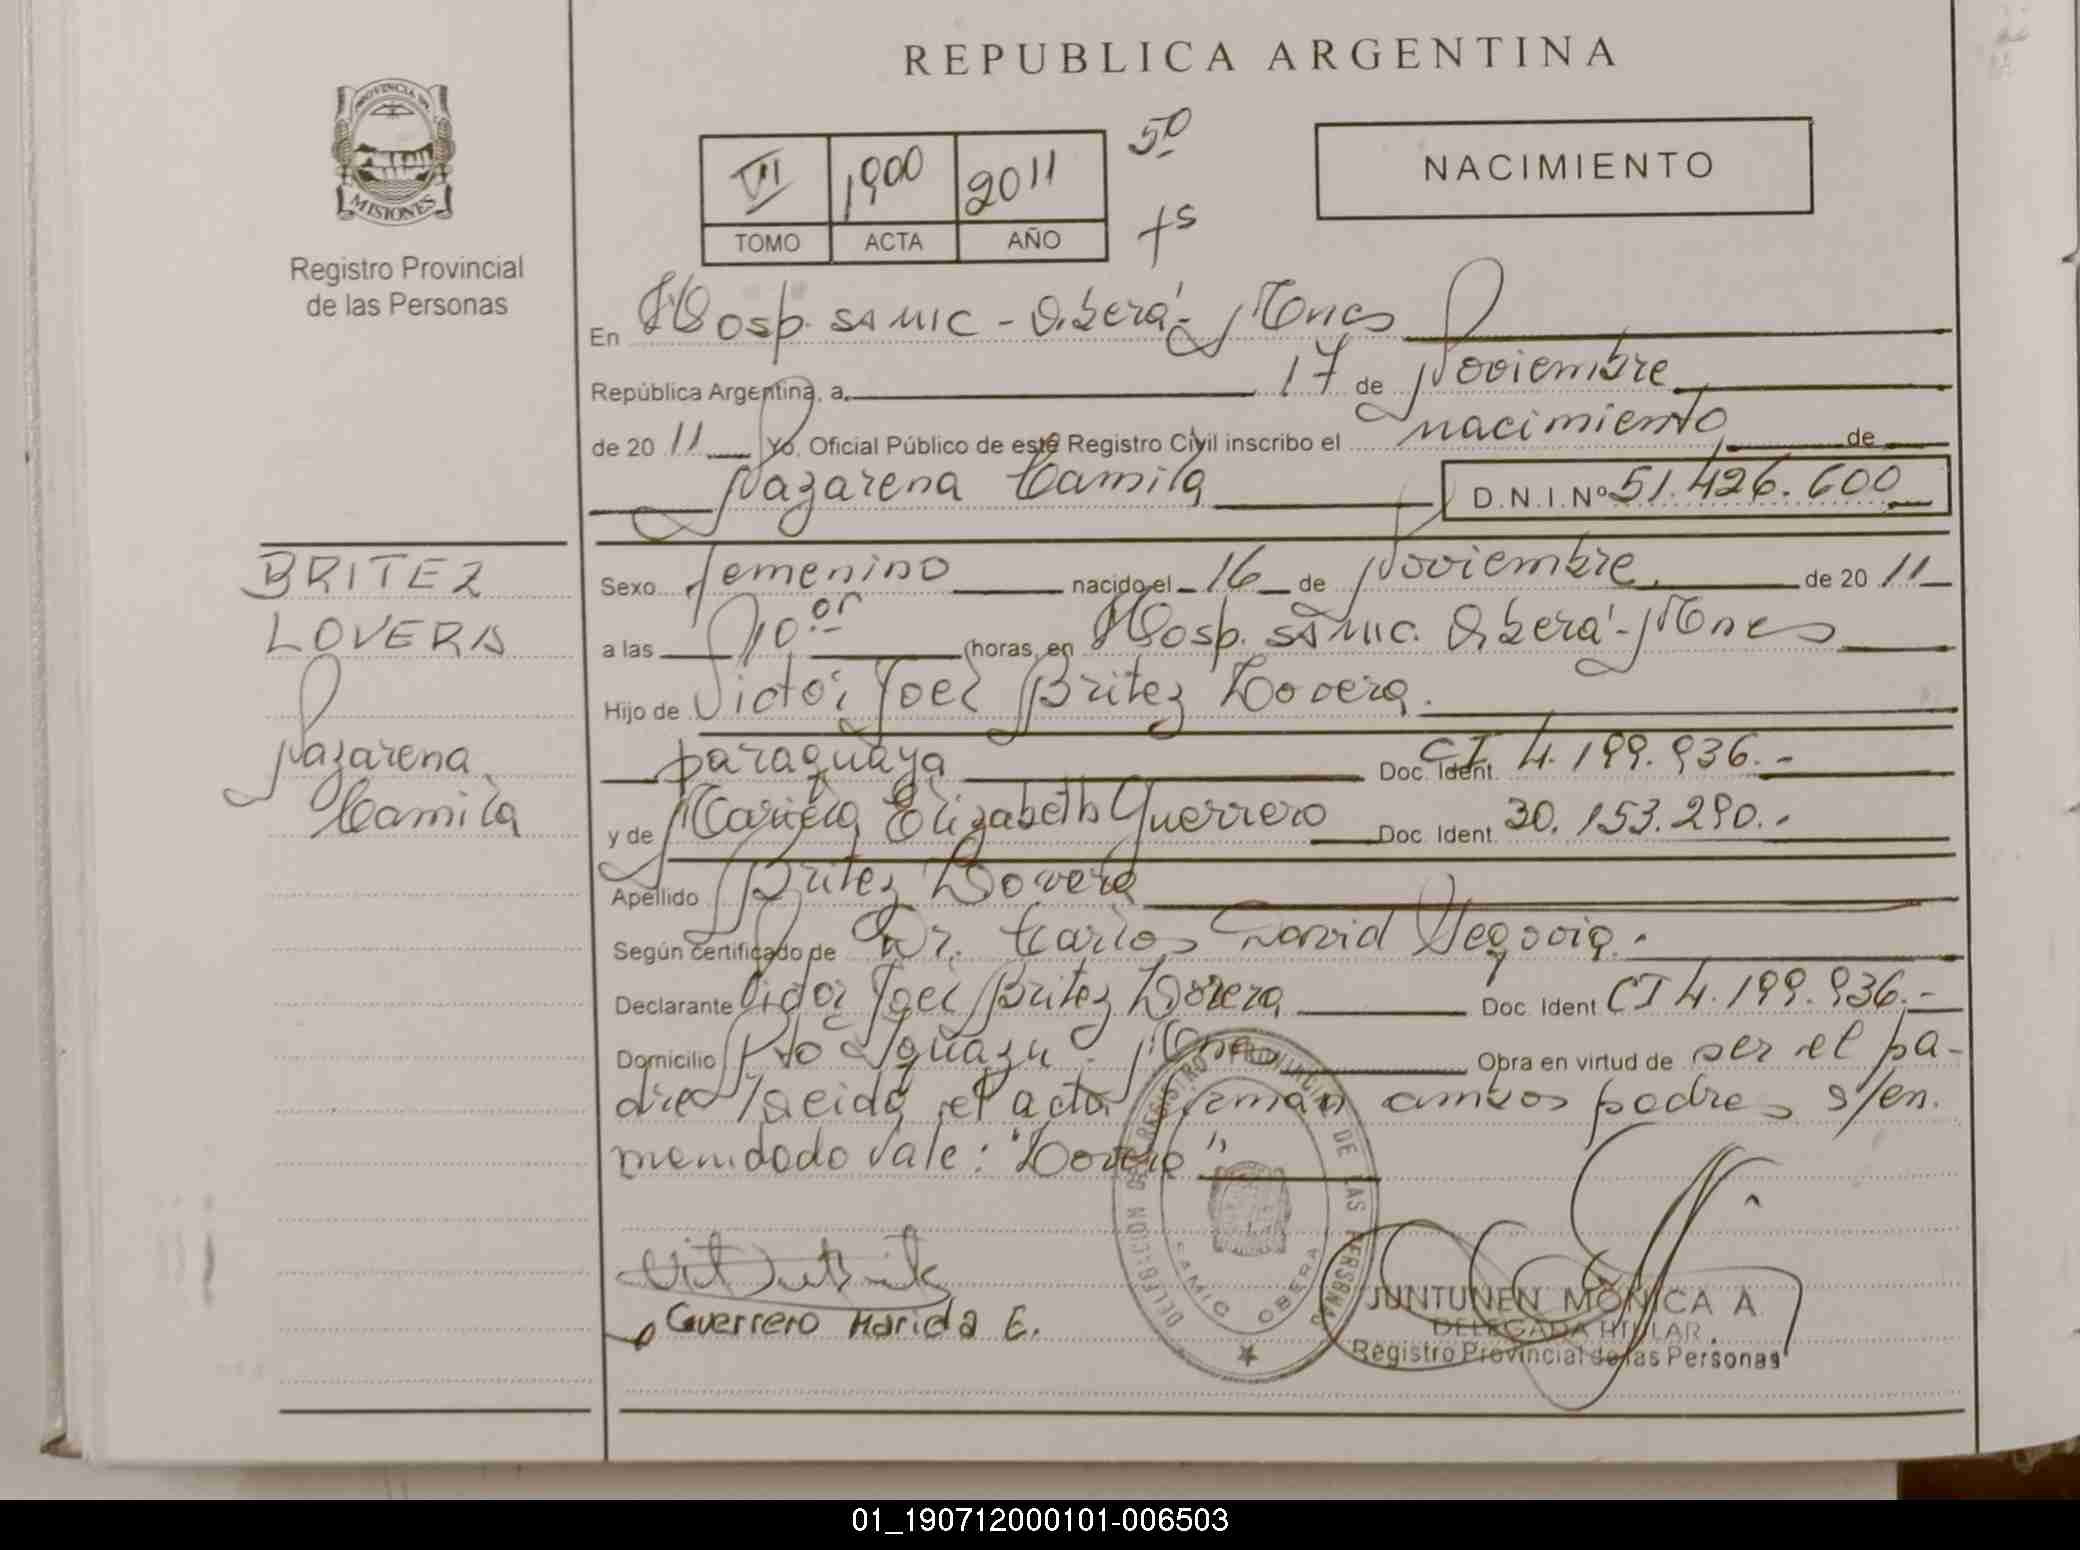 REPUBLICA ARGENTINA
PROVINCIA DE
MISIONES
Registro Provincial
de las Personas
VII 1900 2011
TOMO ACTA AÑO
5º
fs
NACIMIENTO
En Hosp. SAMIC - Oberá - Mnes
República Argentina, a 17 de Noviembre
de 20 11 Yo, Oficial Público de este Registro Civil inscribo el nacimiento de
Nazarena Camila D.N.I.Nº 51.426.600
BRITEZ
LOVERA
Nazarena
Camila
Sexo femenino nacido el 16 de Noviembre de 20 11
a las 10 horas, en Hosp. SAMIC. Oberá - Mnes
Hijo de Victor Joel Britez Lovera.
paraguaya Doc. Ident. CI 4.199.936.-
y de Mariela Elizabeth Guerrero Doc. Ident. 30.153.290.-
Apellido Britez Lovera
Según certificado de Dr. Carlos David Segovia.
Declarante Victor Joel Britez Lovera Doc. Ident CI 4.199.936.-
Domicilio Pto Iguazu. Mnes Obra en virtud de ser el pa-
dre Leida el acta firman ambos padres s/en.
mendado Vale: "Lovera"
Guerrero Mariela E.
DELEGACION REGISTRO PROVINCIAL DE LAS PERSONAS
SAMIC OBERA
JUNTUNEN MONICA A
DELEGADA TITULAR
Registro Provincial de las Personas
01_190712000101-006503